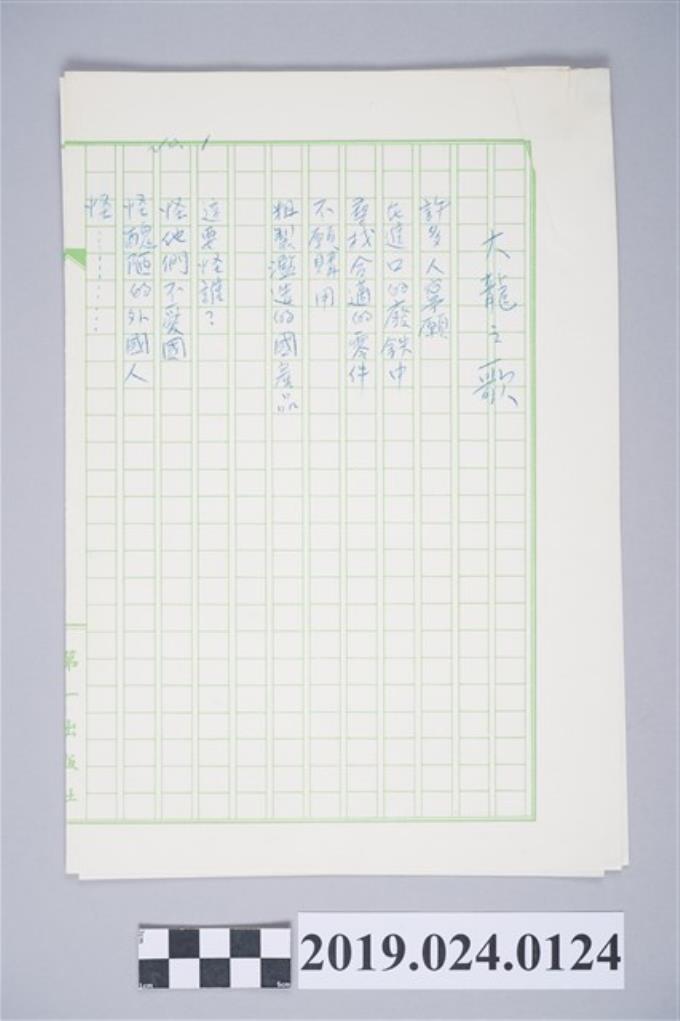 No. 1
大龍之歌
許多人寧願
在進口的廢鉄中
尋找合適的零件
不願購用
粗製濫造的國產品
這要怪誰？
怪他們不愛國
怪醜陋的外國人
怪…………
第一出版社
1cm
5cm
2019.024.0124